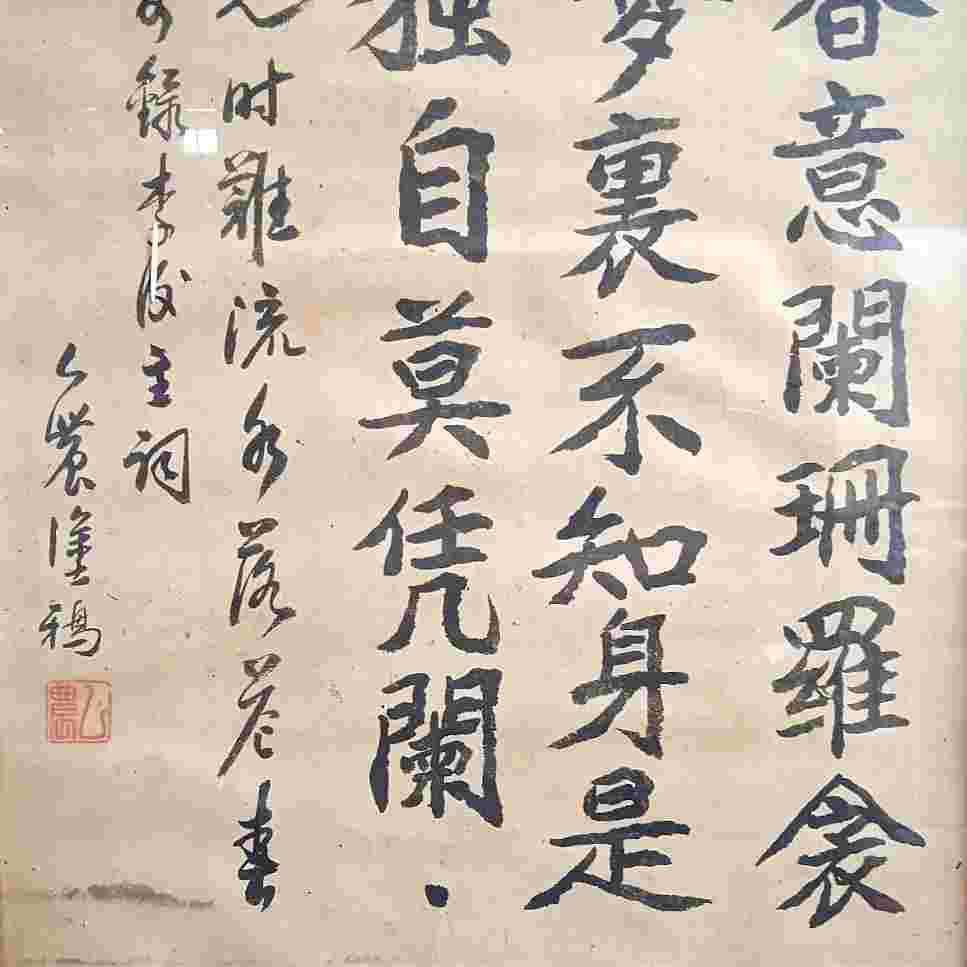 春意闌珊羅衾
夢裏不知身是
独自莫凭闌·
时難流水落花春
錄李後主詞
公農塗鴉
公農